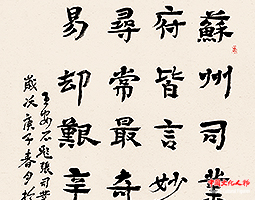 蘇州司業
府皆言妙
尋常最奇
易却艱辛
王安石題張司業
歲次庚子春月於
中国文化人物